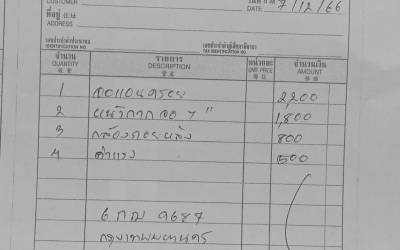 CUSTOMER
วันที่ DATE 7/12/66
ที่อยู่
ADDRESS
เลขประจำตัวประชาชน
IDENTIFICATION NO.
เลขประจำตัวผู้เสียภาษีอากร
TAX IDENTIFICATION NO.
จำนวน รายการ หน่วยละ จำนวนเงิน
QUANTITY DESCRIPTION UNIT PRICE AMOUNT
1 จอแอนดรอย 2,200
2 หน้ากากจอ 7" 1,800
3 กล้องถอยหลัง 800
4 ค่าแรง 500
6 กฌ 9687
กรุงเทพมหานคร